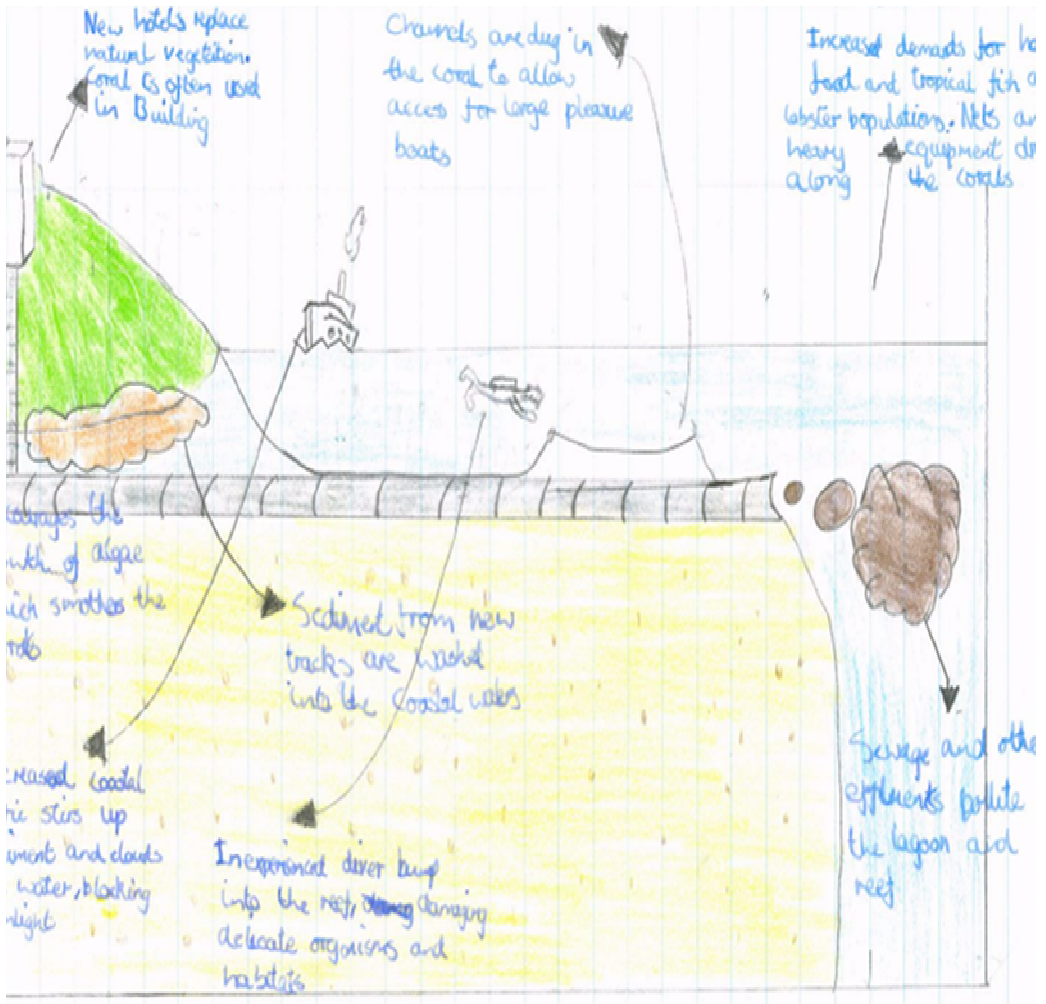 New hotels replace
natural vegetation.
Coral is often used
in Building
Channels are dug in
the coral to allow
access for large pleasure
boats
Increased demands for
food and tropical fish
lobster populations. Nets
heavy equipment
along the corals
the
of algae
smothers the
Sediment from new
tracks are washed
into the coastal waters
coastal
stirs up
and clouds
water, blocking
Inexperienced diver bump
into the reef, damaging
delicate organisms and
habitats
Sewage and
effluents pollute
the lagoon and
reef